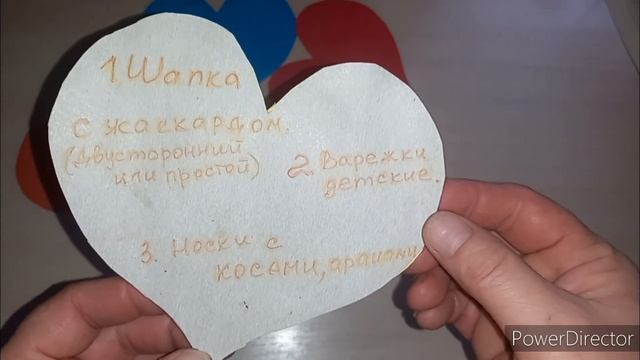 1. Шапка
с жаккардом.
(двусторонний
или простой)
2. Варежки
детские.
3. Носки с
косами, аранами
PowerDirector